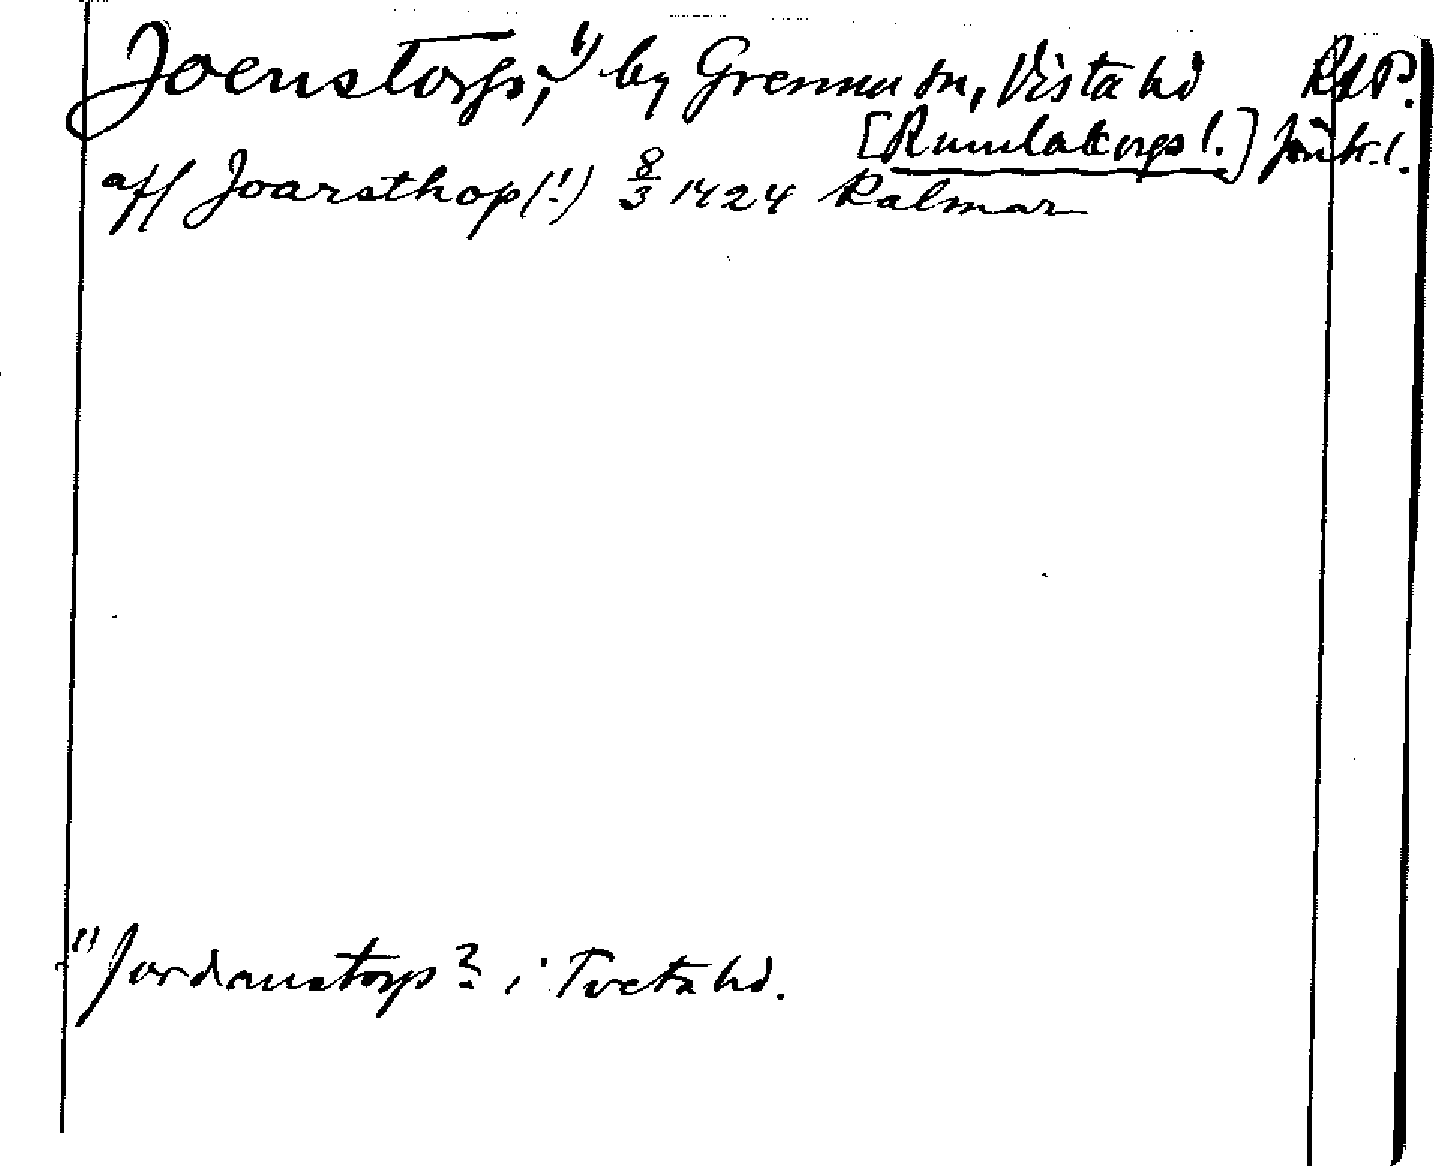 Joenstorp,¹⁾ by Grenna sn, Vista hd RAP.
[Rumlaborgs l.] Jönk. l.
aff Joarsthop(!) 8/3 1424 Kalmar
¹⁾ Jordanstorp? i Tveta hd.